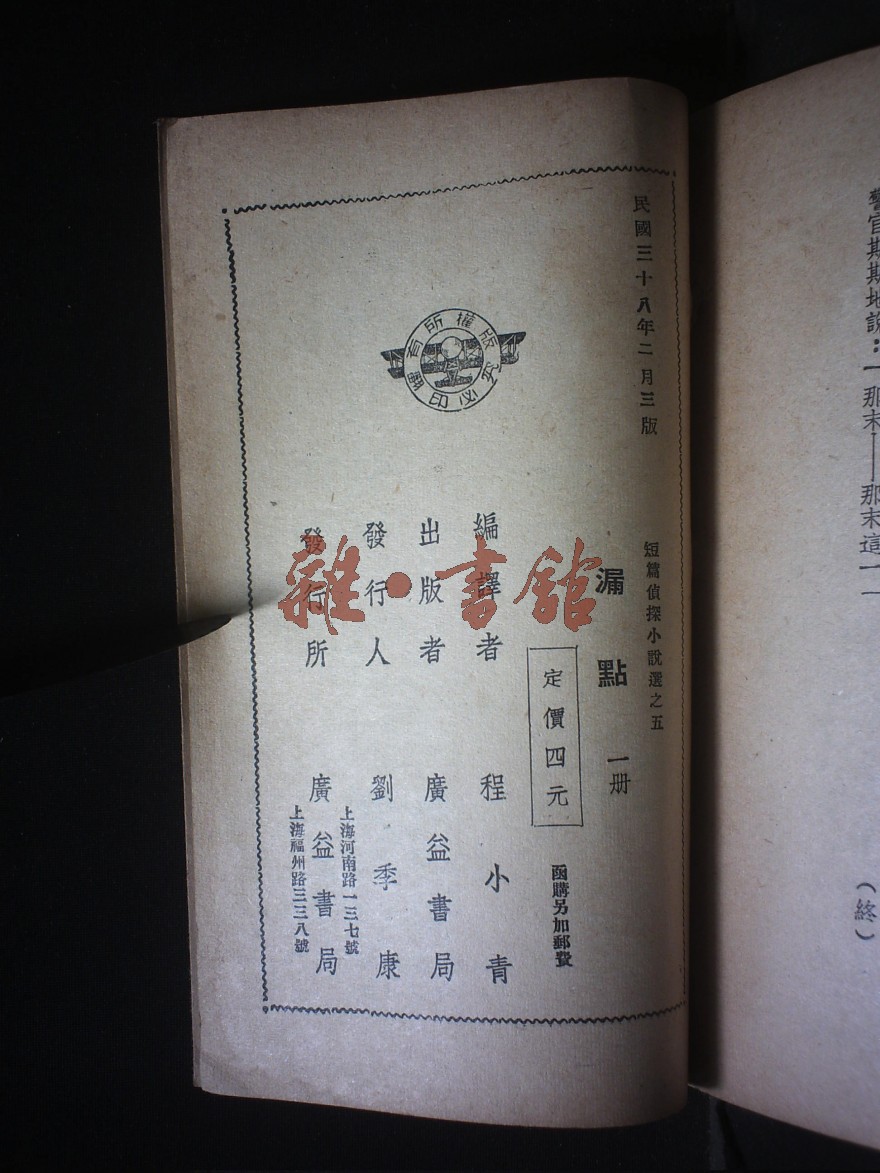 警官期期地說：「那末——那末這——
（終）
民國三十八年二月三版
短篇偵探小說選之五
漏點 一册
定價四元
函購另加郵費
編譯者 程小青
出版者 廣益書局
發行人 劉季康
上海河南路一三七號
發行所 廣益書局
上海福州路三三八號
版權所有
翻印必究
雜·書館